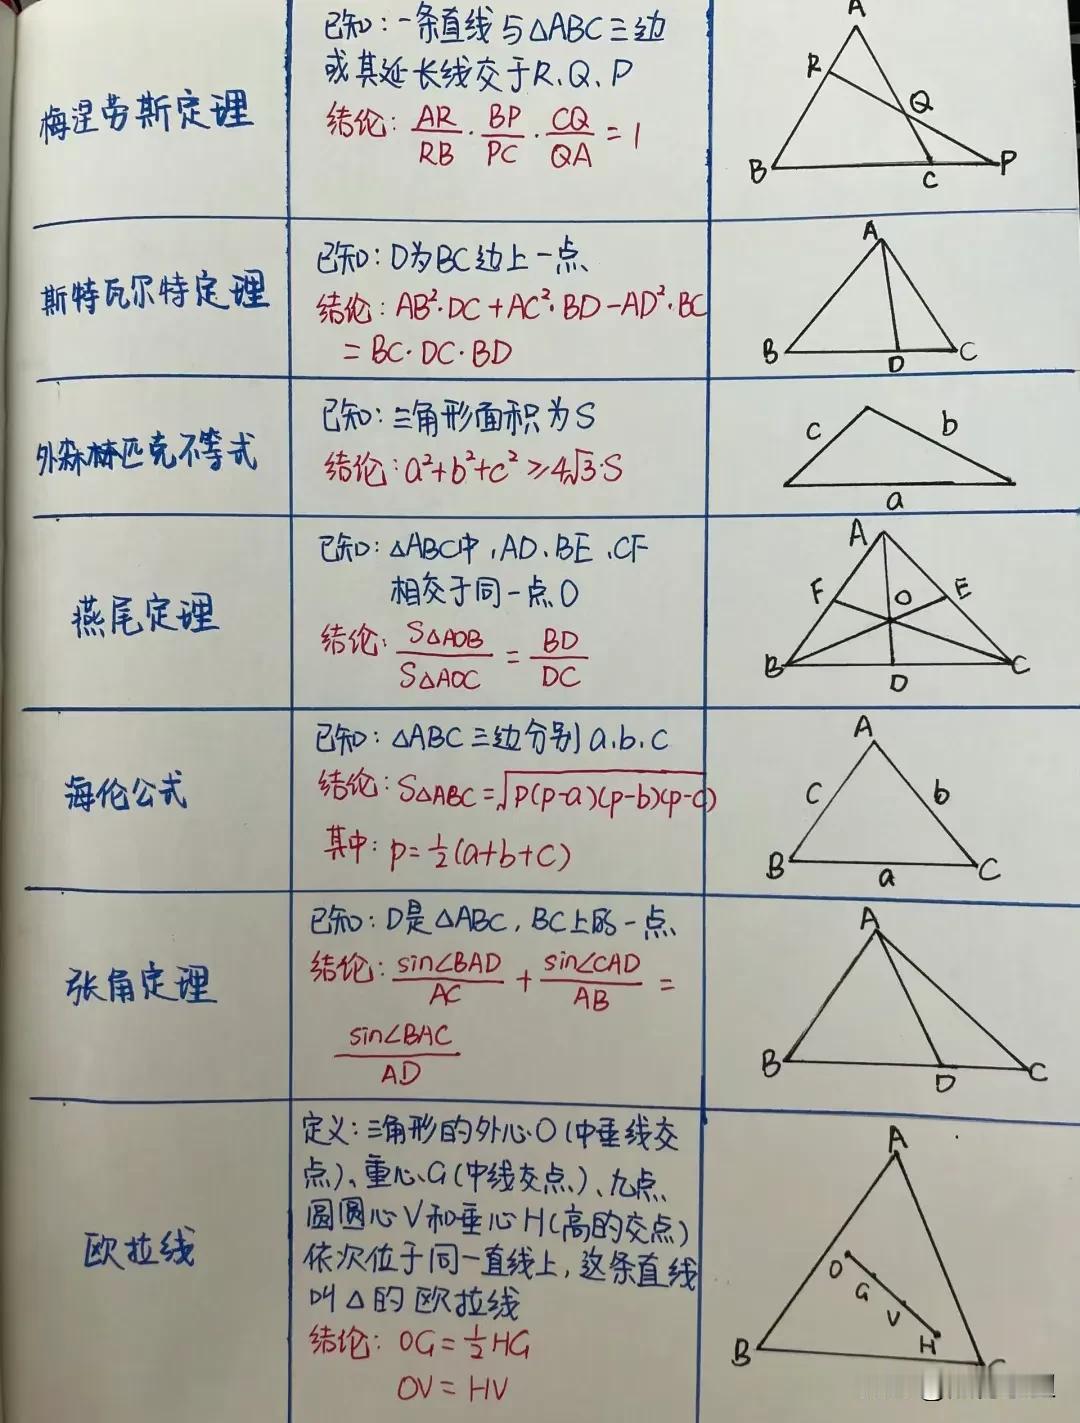 梅涅劳斯定理
已知：一条直线与△ABC三边
或其延长线交于R、Q、P
结论：AR/RB · BP/PC · CQ/QA = 1
A
R
Q
B
C
P
斯特瓦尔特定理
已知：D为BC边上一点
结论：AB²·DC+AC²·BD-AD²·BC
=BC·DC·BD
A
B
D
C
外森林匹克不等式
已知：三角形面积为S
结论：a²+b²+c²≥4√3·S
c
b
a
燕尾定理
已知：△ABC中，AD、BE、CF
相交于同一点O
结论：S△AOB/S△AOC = BD/DC
A
F
O
E
B
D
C
海伦公式
已知：△ABC三边分别a.b.c
结论：S△ABC=√p(p-a)(p-b)(p-c)
其中：p=½(a+b+c)
A
c
b
B
a
C
张角定理
已知：D是△ABC，BC上的一点
结论：sin∠BAD/AC + sin∠CAD/AB =
sin∠BAC/AD
A
B
D
C
欧拉线
定义：三角形的外心O(中垂线交
点)、重心G(中线交点)、九点
圆圆心V和垂心H(高的交点)
依次位于同一直线上，这条直线
叫△的欧拉线
结论：OG=½HG
OV=HV
A
O
G
V
H
B
C